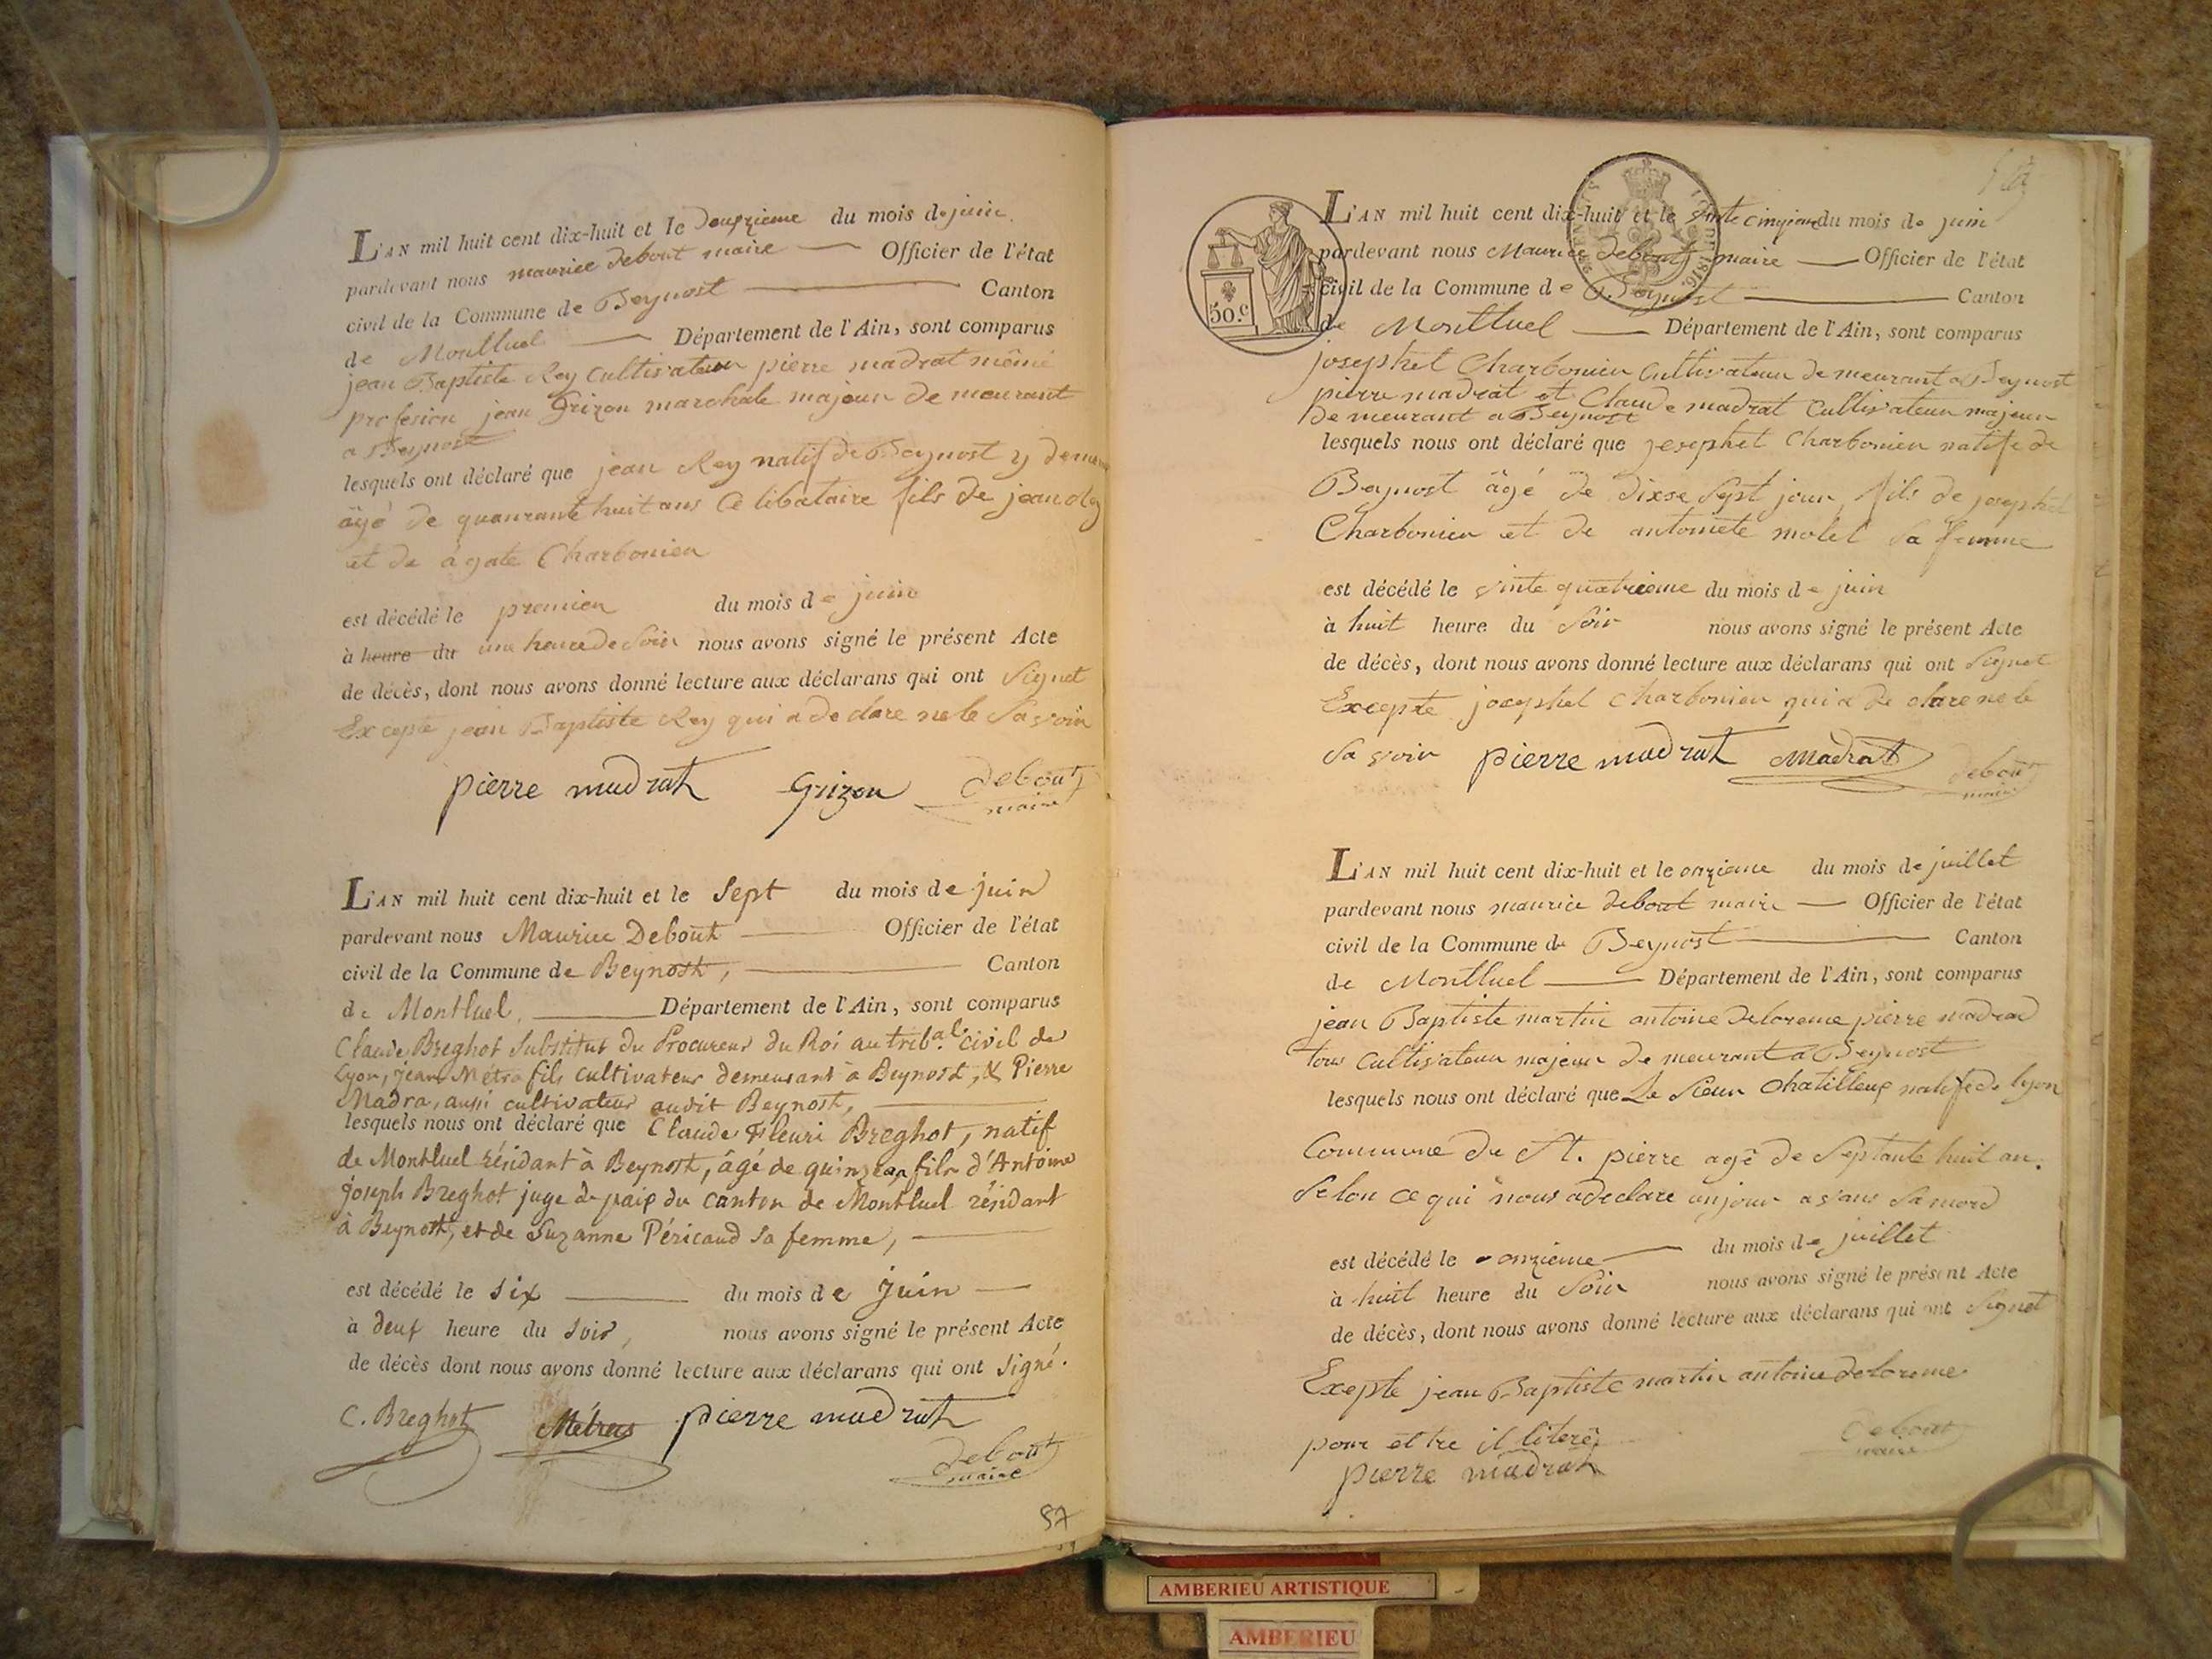 L'AN mil huit cent dix-huit et le deuxzieme du mois de juin
pardevant nous maurice debout maire Officier de l'état
civil de la Commune de Beynost Canton
de Montluel Département de l'Ain, sont comparus
jean Baptiste Rey Cultivateur pierre madrat même
profesion jean Grizon marchale majeur de meurant
a Beynost
lesquels ont déclaré que jean Rey natif de Beynost y
âgé de quanrante huit ans Celibataire fils de jean Rey
et de agate Charbonien
est décédé le premier du mois de juin
à heure du une heure de Soir nous avons signé le présent Acte
de décès, dont nous avons donné lecture aux déclarans qui ont Signet
Excepte jean Baptiste Rey qui a de clare ne le Savoir
pierre madrat Grizon debout
maire
L'AN mil huit cent dix-huit et le Sept du mois de juin
pardevant nous Maurice Debout Officier de l'état
civil de la Commune de Beynost, Canton
de Montluel, Département de l'Ain, sont comparus
Claude Breghot Substitut du Procureur du Roi au tribal. civil de
Lyon, jean Métra fils cultivateur demeurant à Beynost, & Pierre
Madra, aussi cultivateur audit Beynost,
lesquels nous ont déclaré que Claude Fleuri Breghot, natif
de Montluel résidant à Beynost, âgé de quinze ans fils d'Antoine
joseph Breghot juge de paix du canton de Montluel résidant
à Beynost, et de Suzanne Péricaud sa femme,
est décédé le six du mois de juin
à deux heure du soir, nous avons signé le présent Acte
de décès dont nous avons donné lecture aux déclarans qui ont signé.
C. Breghot Métras pierre madrat
debout
maire
57
L'AN mil huit cent dix-huit et le vinte cinqieme du mois de juin
pardevant nous Maurice Debout maire Officier de l'état
civil de la Commune de Beynost Canton
50.c
de Montluel Département de l'Ain, sont comparus
josephet Charbonien Cultivateur de meurant a Beynost
pierre madrat et Claude madrat Cultivateur majeur
de meurant a Beynost
lesquels nous ont déclaré que josephet Charbonien natife de
Beynost âgé de dixse Sept jour, fils de josephet
Charbonien et de antoinete molel Sa femme
est décédé le vinte quatrieme du mois de juin
à huit heure du Soir nous avons signé le présent Acte
de décès, dont nous avons donné lecture aux déclarans qui ont Signet
Excepte josephet Charbonien qui a de clare ne le
Sa voir pierre madrat Madrat debout
maire
L'AN mil huit cent dix-huit et le onzieme du mois de juillet
pardevant nous maurice debout maire Officier de l'état
civil de la Commune de Beynost Canton
de Montluel Département de l'Ain, sont comparus
jean Baptiste martin antoine Deloreme pierre madrad
tous Cultivateur majeur de meurant a Beynost
lesquels nous ont déclaré que Le Sieur Chatilleux natife de lyon
Commune de St. pierre agé de Septante huit an.
Selon ce qui nous a declare un jour avans Sa mord
est décédé le onzieme du mois de juillet
à huit heure du Soir nous avons signé le présent Acte
de décès, dont nous avons donné lecture aux déclarans qui ont Signet
Exepte jean Baptiste martin antoine deloreme
pour ettre il literé, debout
maire
pierre madrat
AMBERIEU ARTISTIQUE
AMBERIEU